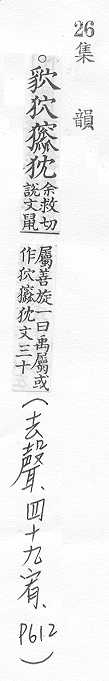 26
集韻
。狖
余救切
說文鼠
屬善旋一曰禺屬或
作狖文三十
(去聲、四十九宥、P612)